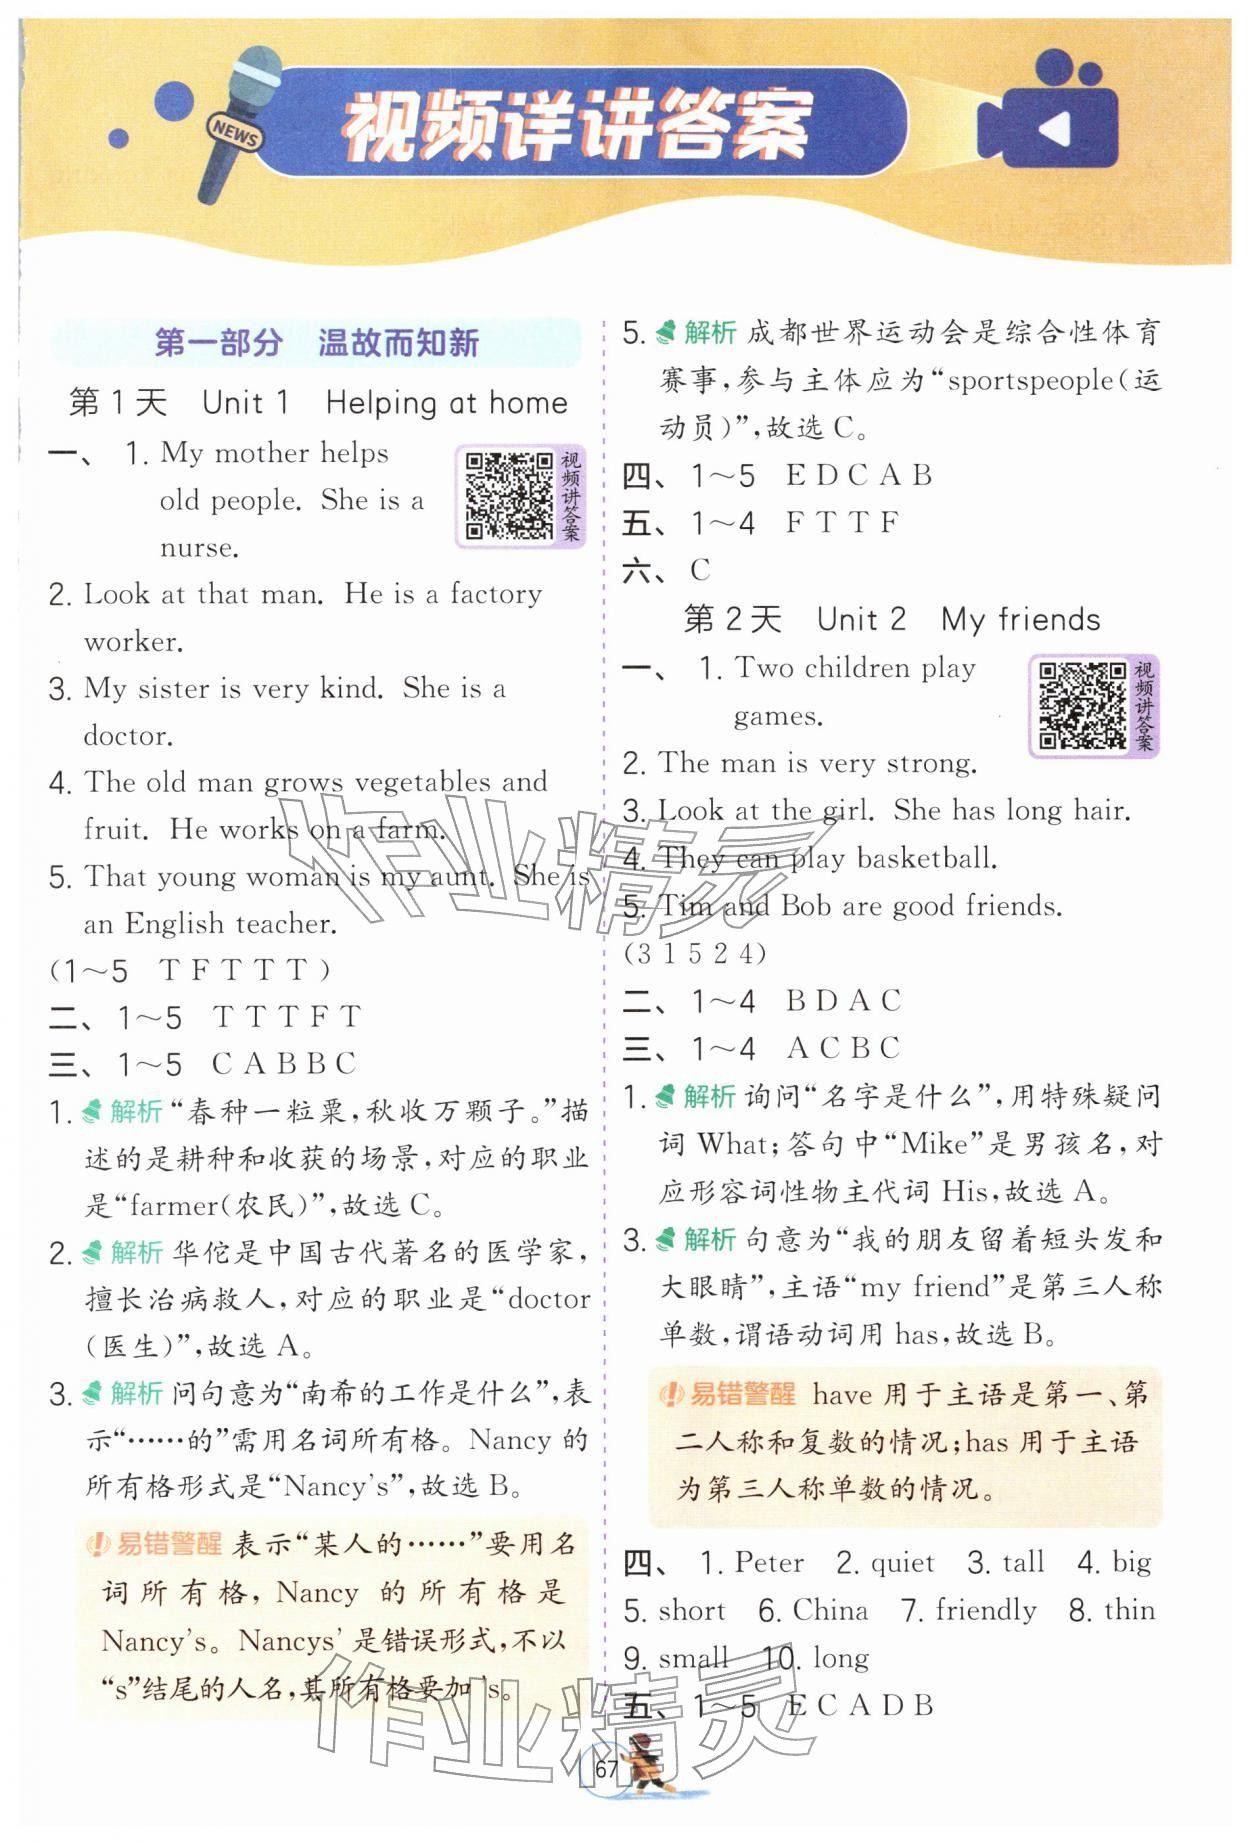 NEWS
视频详讲答案
第一部分 温故而知新
第1天 Unit 1 Helping at home
一、 1. My mother helps
old people. She is a
nurse.
视频讲答案
2. Look at that man. He is a factory
worker.
3. My sister is very kind. She is a
doctor.
4. The old man grows vegetables and
fruit. He works on a farm.
5. That young woman is my aunt. She is
an English teacher.
(1～5 T F T T T )
二、 1～5 T T T F T
三、 1～5 C A B B C
1. 解析 “春种一粒粟，秋收万颗子。”描
述的是耕种和收获的场景，对应的职业
是“farmer(农民)”，故选 C。
2. 解析 华佗是中国古代著名的医学家，
擅长治病救人，对应的职业是“doctor
(医生)”，故选 A。
3. 解析 问句意为“南希的工作是什么”，表
示“……的”需用名词所有格。Nancy 的
所有格形式是“Nancy's”，故选 B。
易错警醒 表示“某人的……”要用名
词所有格，Nancy 的所有格是
Nancy's。Nancys' 是错误形式，不以
“s”结尾的人名，其所有格要加 's。
5. 解析 成都世界运动会是综合性体育
赛事，参与主体应为“sportspeople(运
动员)”，故选 C。
四、 1～5 E D C A B
五、 1～4 F T T F
六、 C
第2天 Unit 2 My friends
一、 1. Two children play
games.
视频讲答案
2. The man is very strong.
3. Look at the girl. She has long hair.
4. They can play basketball.
5. Tim and Bob are good friends.
(3 1 5 2 4)
二、 1～4 B D A C
三、 1～4 A C B C
1. 解析 询问“名字是什么”，用特殊疑问
词 What；答句中“Mike”是男孩名，对
应形容词性物主代词 His，故选 A。
3. 解析 句意为“我的朋友留着短头发和
大眼睛”，主语“my friend”是第三人称
单数，谓语动词用 has，故选 B。
易错警醒 have 用于主语是第一、第
二人称和复数的情况；has 用于主语
为第三人称单数的情况。
四、 1. Peter 2. quiet 3. tall 4. big
5. short 6. China 7. friendly 8. thin
9. small 10. long
五、 1～5 E C A D B
67
作业精灵
作业精灵